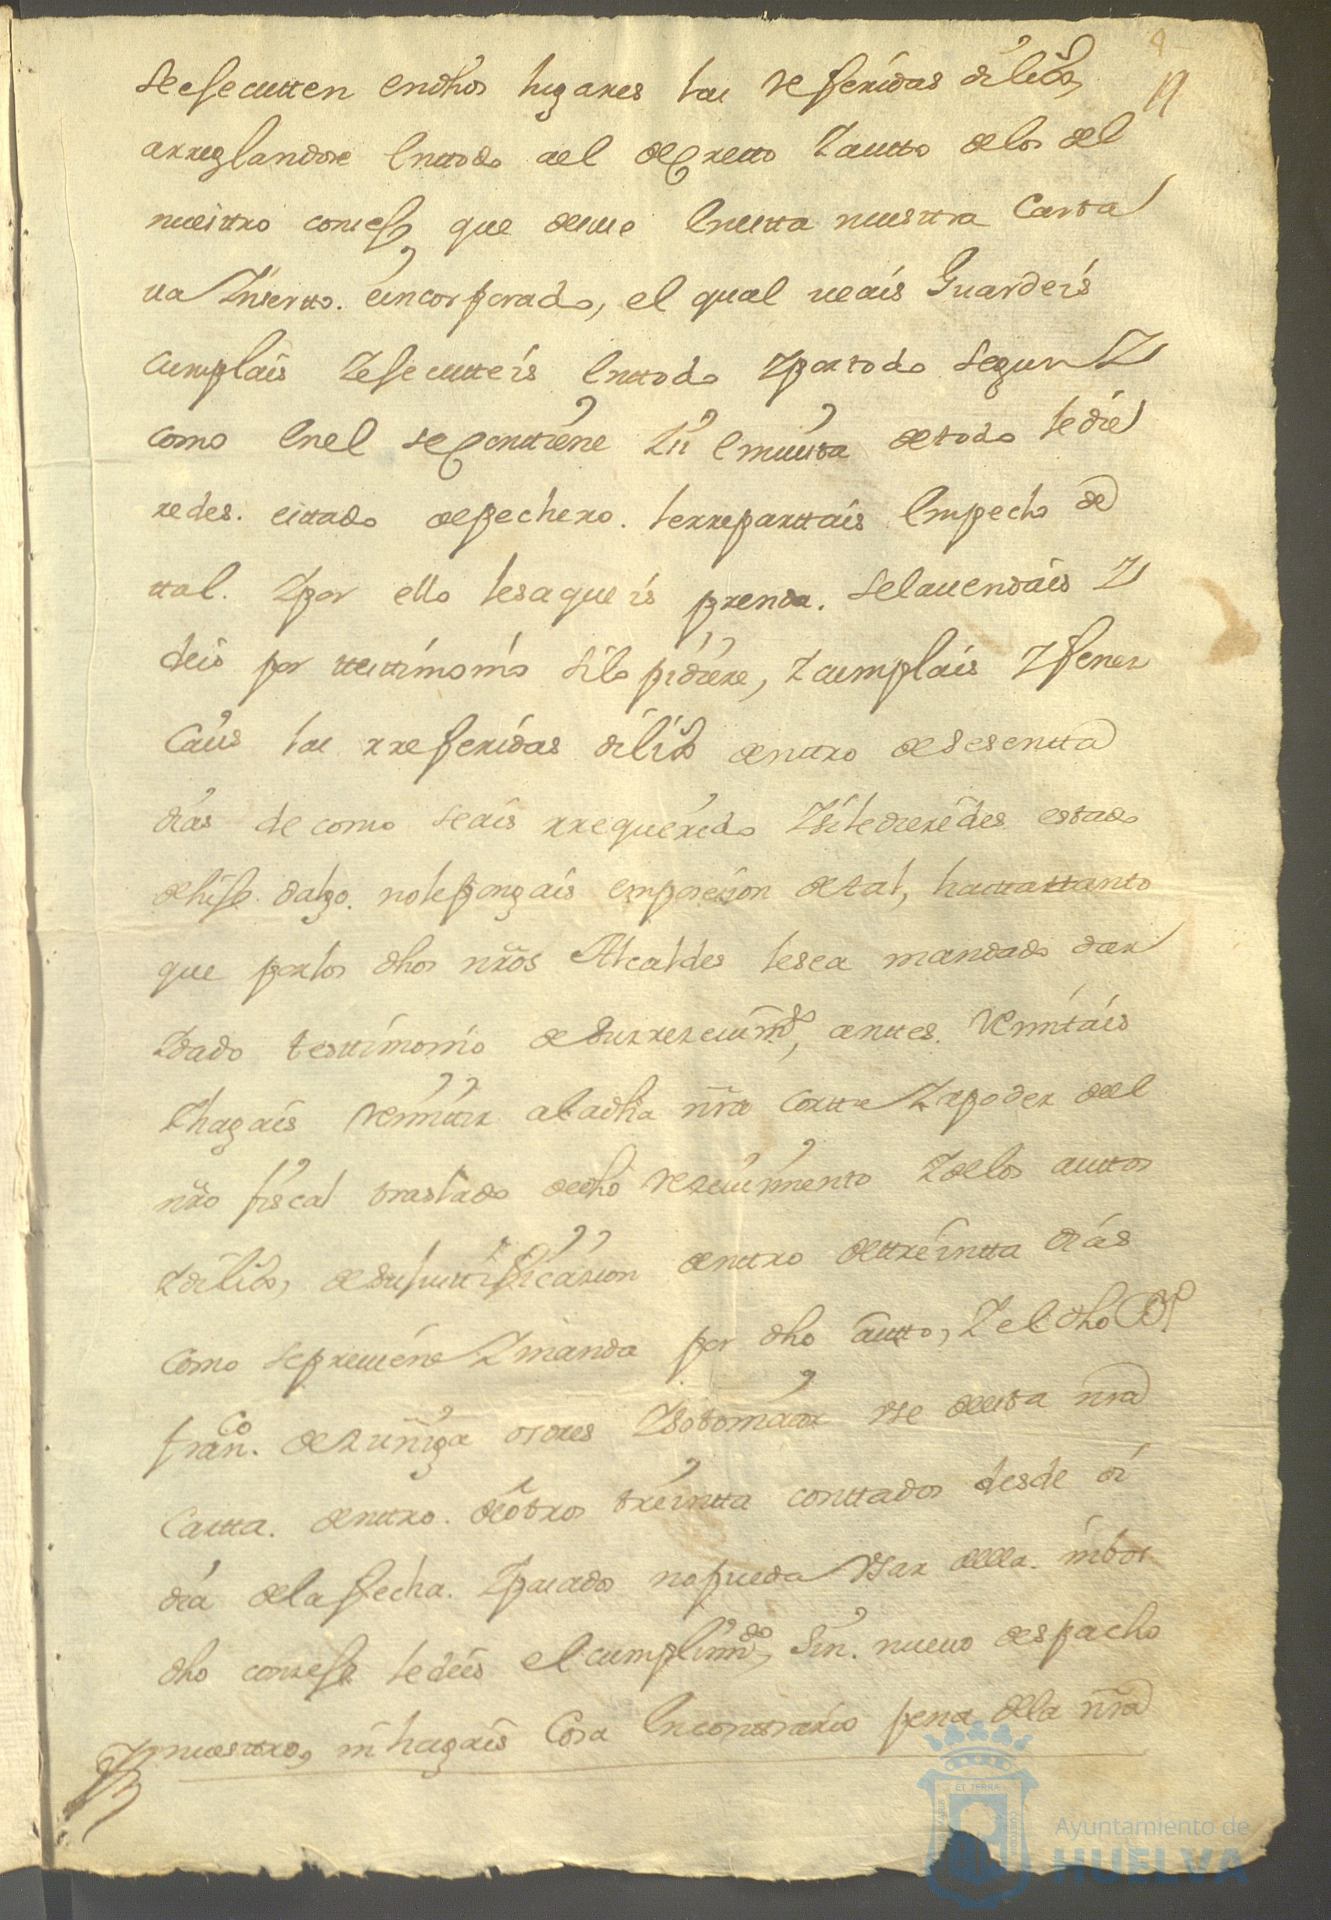 4
19
Seesecutten endhos lugares las referidas dilixs
arreglandose enttodo ael decretto Y autto delos del
nuesttro consejo que deuuo enesta nuesttra Cartta
ua Ynsertto. eincorporado, el qual ueais Guardeis
cumplais Y esecutteis enttodo Y portodo Segun Y
como enel secontiene Y si enuista detodo lediè
redes. esttado depechero. lerreparttais enpecho de
ttal. Y por ello lesaqueis prenda. Selauendais Y
deis por ttesttimonio silo pidiere, Y cumplais Y fenez
Cais las rreferidas dilixs denttro desesentta
dias de como seais rrequerido Y siledieredes estado
dehijo dalgo. nolepongais enposesion detal, hasttattanto
que porlos dhos nrõs Alcaldes lesea mandado dar
Y dado testtimonio desurrezeuimto, anttes. Remitais
Y hagais Remittir aladha nrã Cortte Y apoder del
nrõ fiscal traslado dedho Rezeuimiento Y delos auttos
Y dilixs, desujusttificazion denttro dettreintta dias
Como sepreuiene Y manda por dho autto, Y el dho Dn
franco. dezuñiga osores Y sotomaior use deesta nrã
Cartta. denttro. deotros treintta conttados desde el
dia delafecha. Y pasados nopueda usar della. nibos
dho consejo ledeis el cumplimto, Sin. nueuo despacho
Y nuesttro, nihagais Cosa enconttrario pena dela nrã
ET TERRAE
Ayuntamiento de
HUELVA